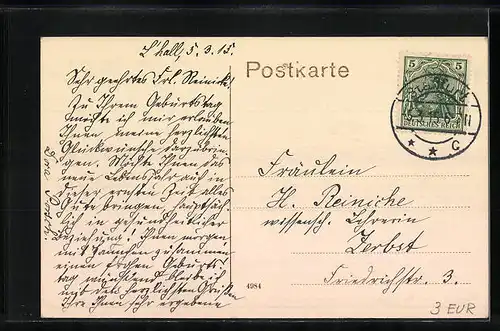 L'hall, 5. 3. 15.
Sehr geehrtes Frl. Reinicke!
Zu Ihrem Geburtstag
möchte ich mir erlauben
Ihnen meine herzlichsten
Glückwünsche darzubrin-
gen. Möchte Ihnen das
neue Lebensjahr auch in
dieser ernsten Zeit alles
Gute bringen, hauptsäch-
lich in gesundheitlicher
Beziehung! Ihnen morgen
mit zusammen
einen frohen Geburts-
tag wünschend
mit den herzlichsten Grüßen
Ihre Ihnen sehr ergebene
Postkarte
5 5
DEUTSCHES REICH
* * C
Fräulein
H. Reinicke
wissensch. Lehrerin
Zerbst
Friedrichstr. 3.
4984
3 EUR